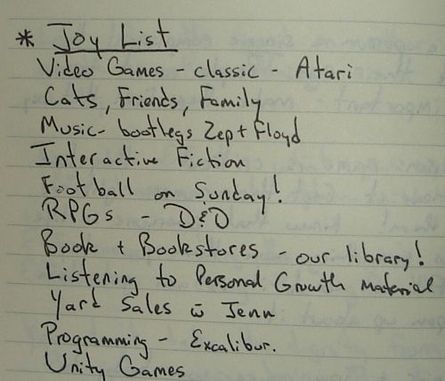 * Joy List
Video Games - classic - Atari
Cats, Friends, Family
Music - bootlegs Zep + Floyd
Interactive Fiction
Football on Sunday!
RPGs - D&D
Book + Bookstores - our library!
Listening to Personal Growth Material
Yard Sales w̄ Jenn
Programming - Excalibur.
Unity Games